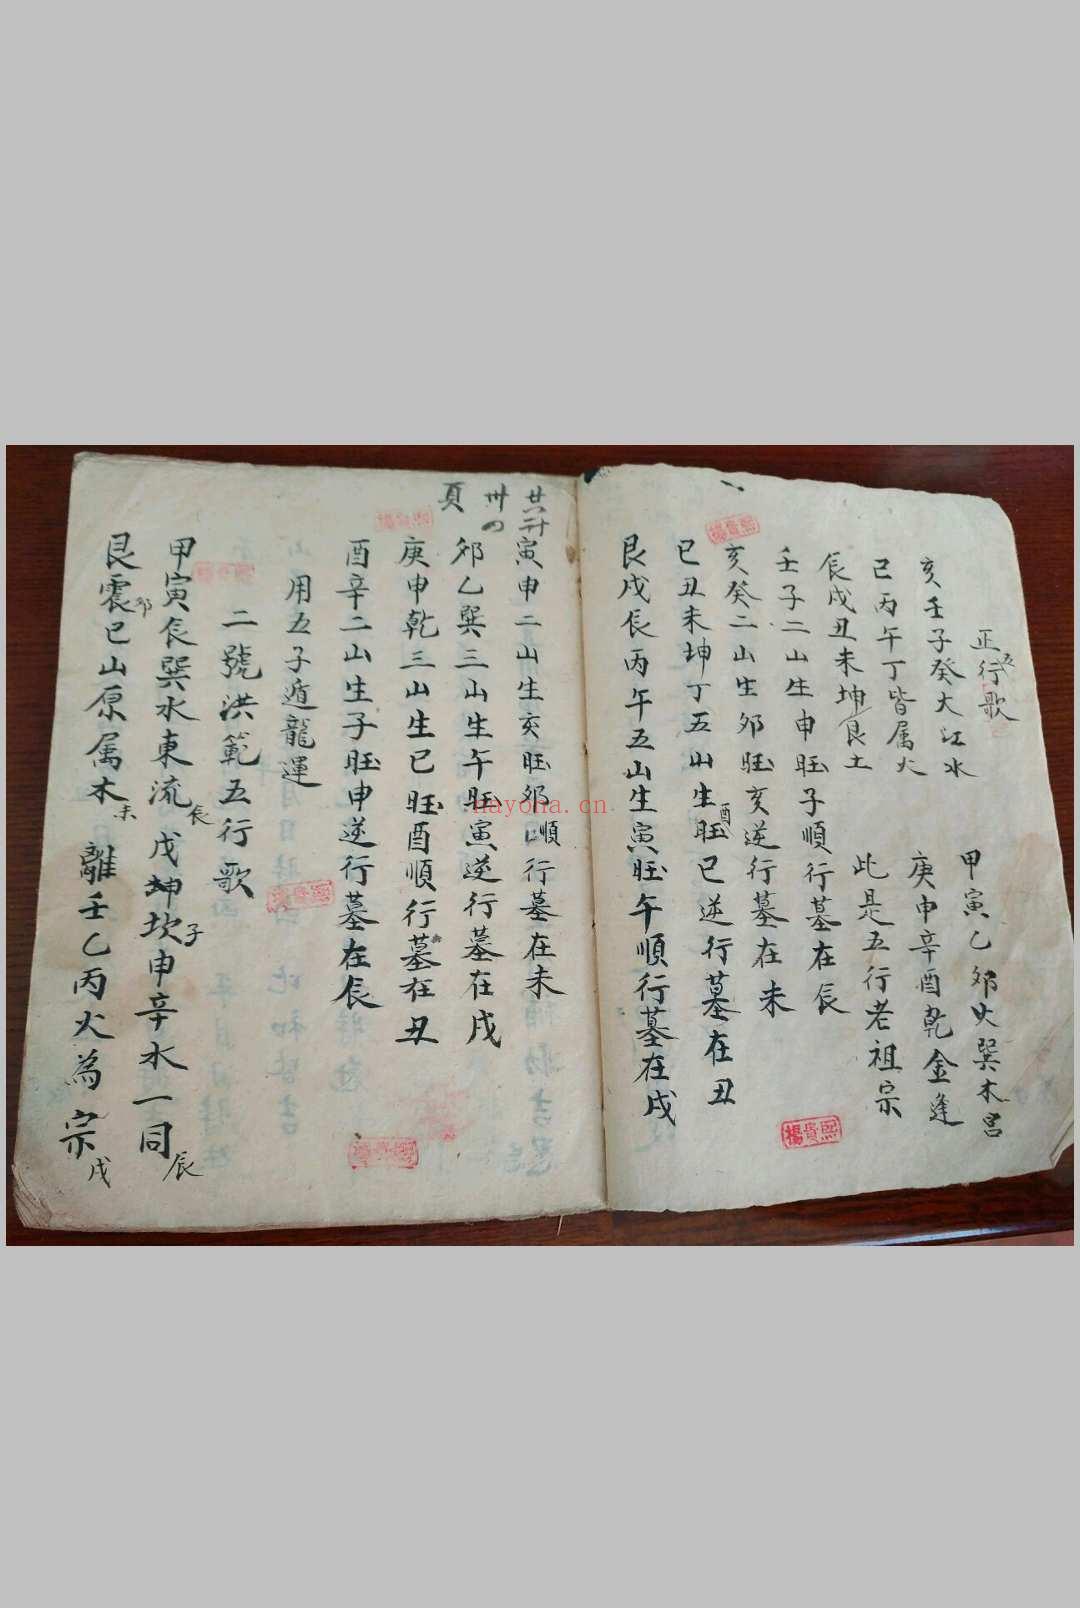 正五行歌
亥壬子癸大江水 甲寅乙夘巽木宮
巳丙午丁皆属火 庚申辛酉乾金逢
辰戌丑未坤艮土 此是五行老祖宗
壬子二山生申旺子順行墓在辰
亥癸二山生夘旺亥逆行墓在未
巳丑未坤丁五山生酉旺巳逆行墓在丑
艮戌辰丙午五山生寅旺午順行墓在戌
廿二
卅四
頁
寅申二山生亥旺夘順行墓在未
夘乙巽三山生午旺寅逆行墓在戌
庚申乾三山生巳旺酉順行墓在丑
酉辛二山生子旺申逆行墓在辰
用五子遁龍運
二號洪範五行歌
甲寅辰巽水東流辰 戌坤坎子申辛水一同辰
艮震夘巳山原属木未 離壬乙丙火為宗戌
楊貴熙
楊貴熙
楊貴熙
楊貴熙
nayona.cn